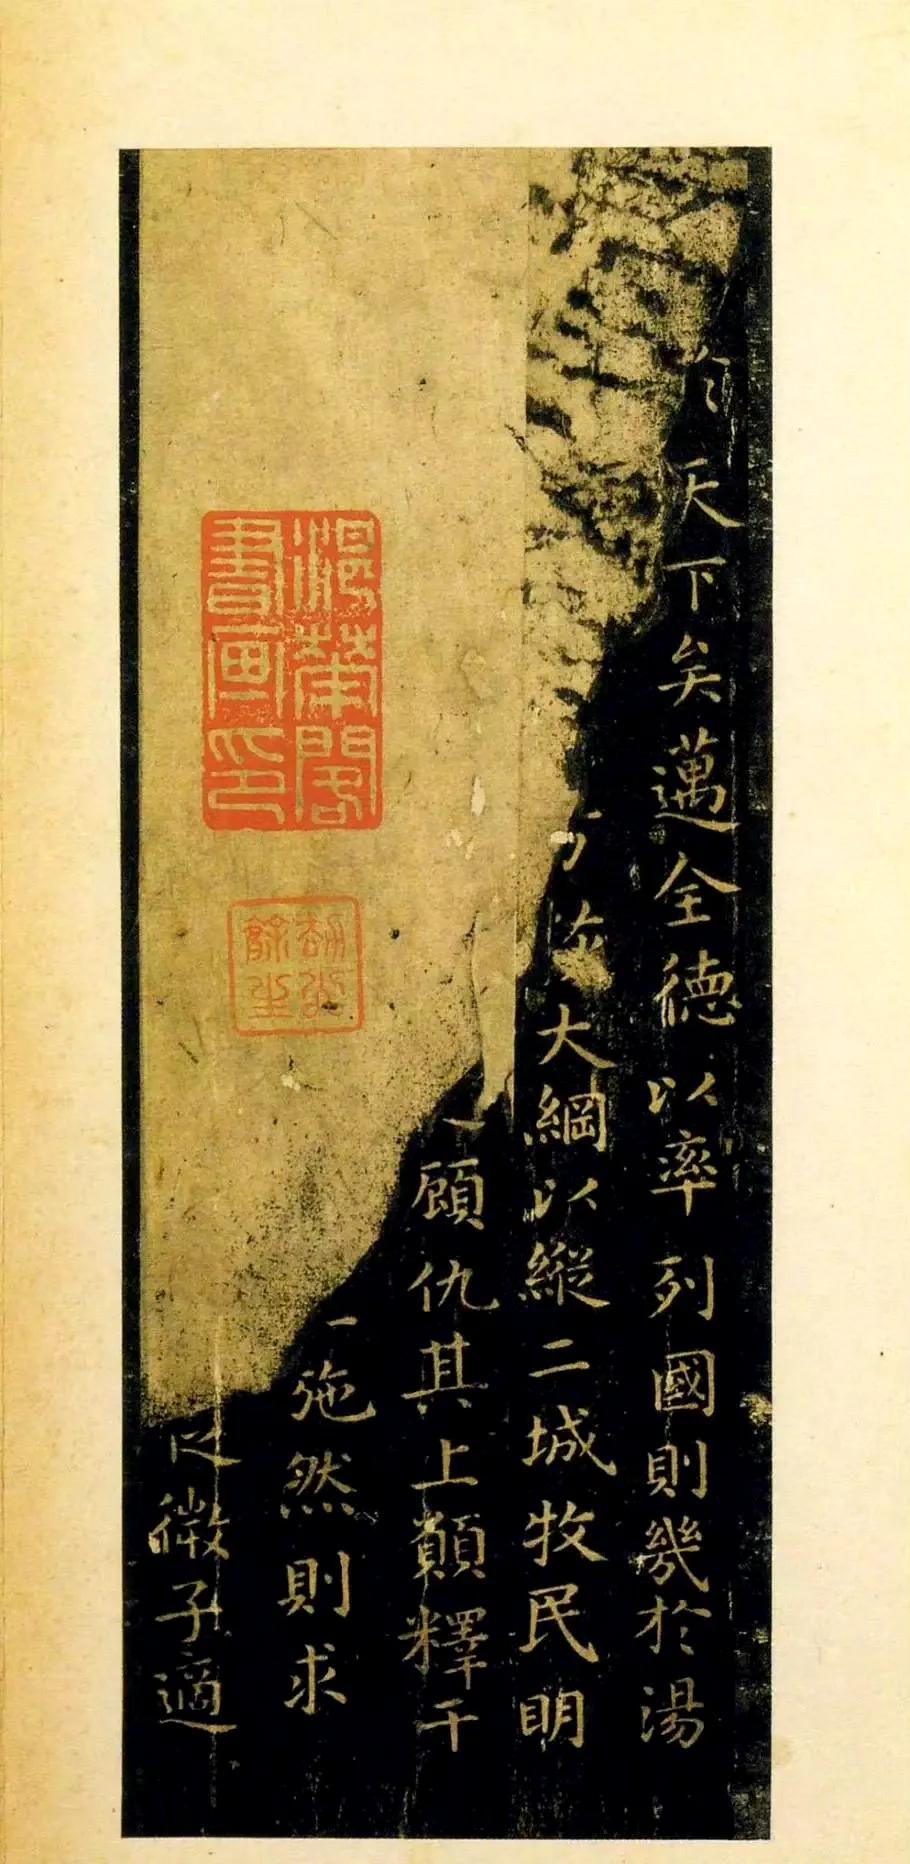 於天下矣邁全德以率列國則幾於湯
大綱以縱二城牧民明
顧仇其上願釋干
施然則求
微子適
書畫印